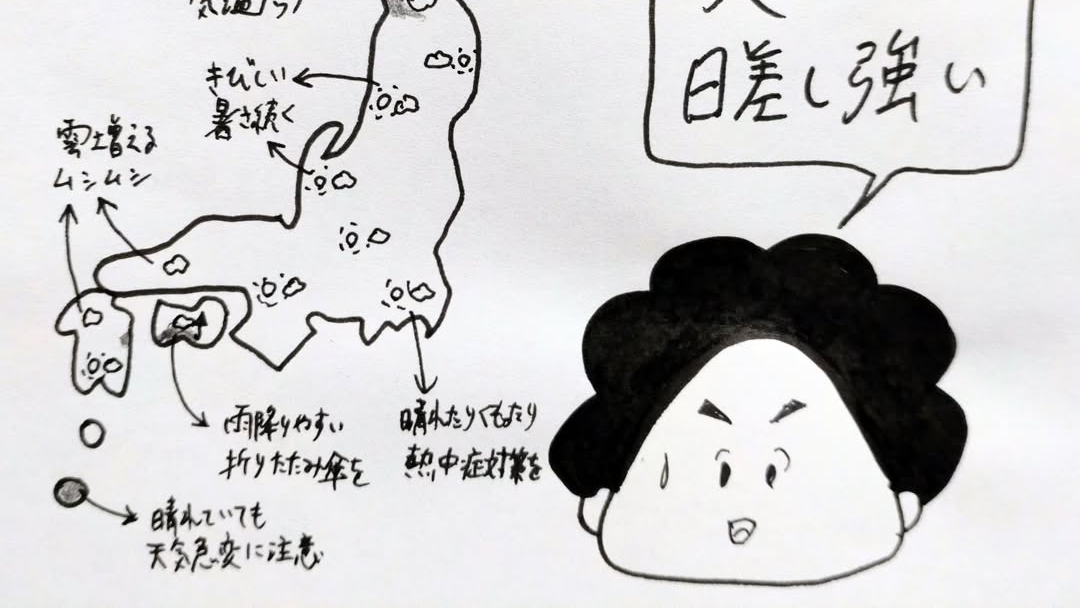 日差し強い
きびしい
暑さ続く
雲増える
ムシムシ
雨降りやすい
折りたたみ傘を
晴れたりくもったり
熱中症対策を
晴れていても
天気急変に注意